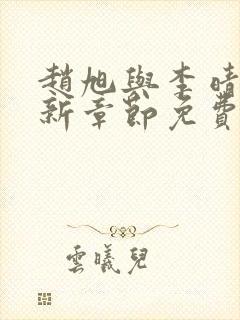 趙旭與李晴
新章節免費
雲曦兒